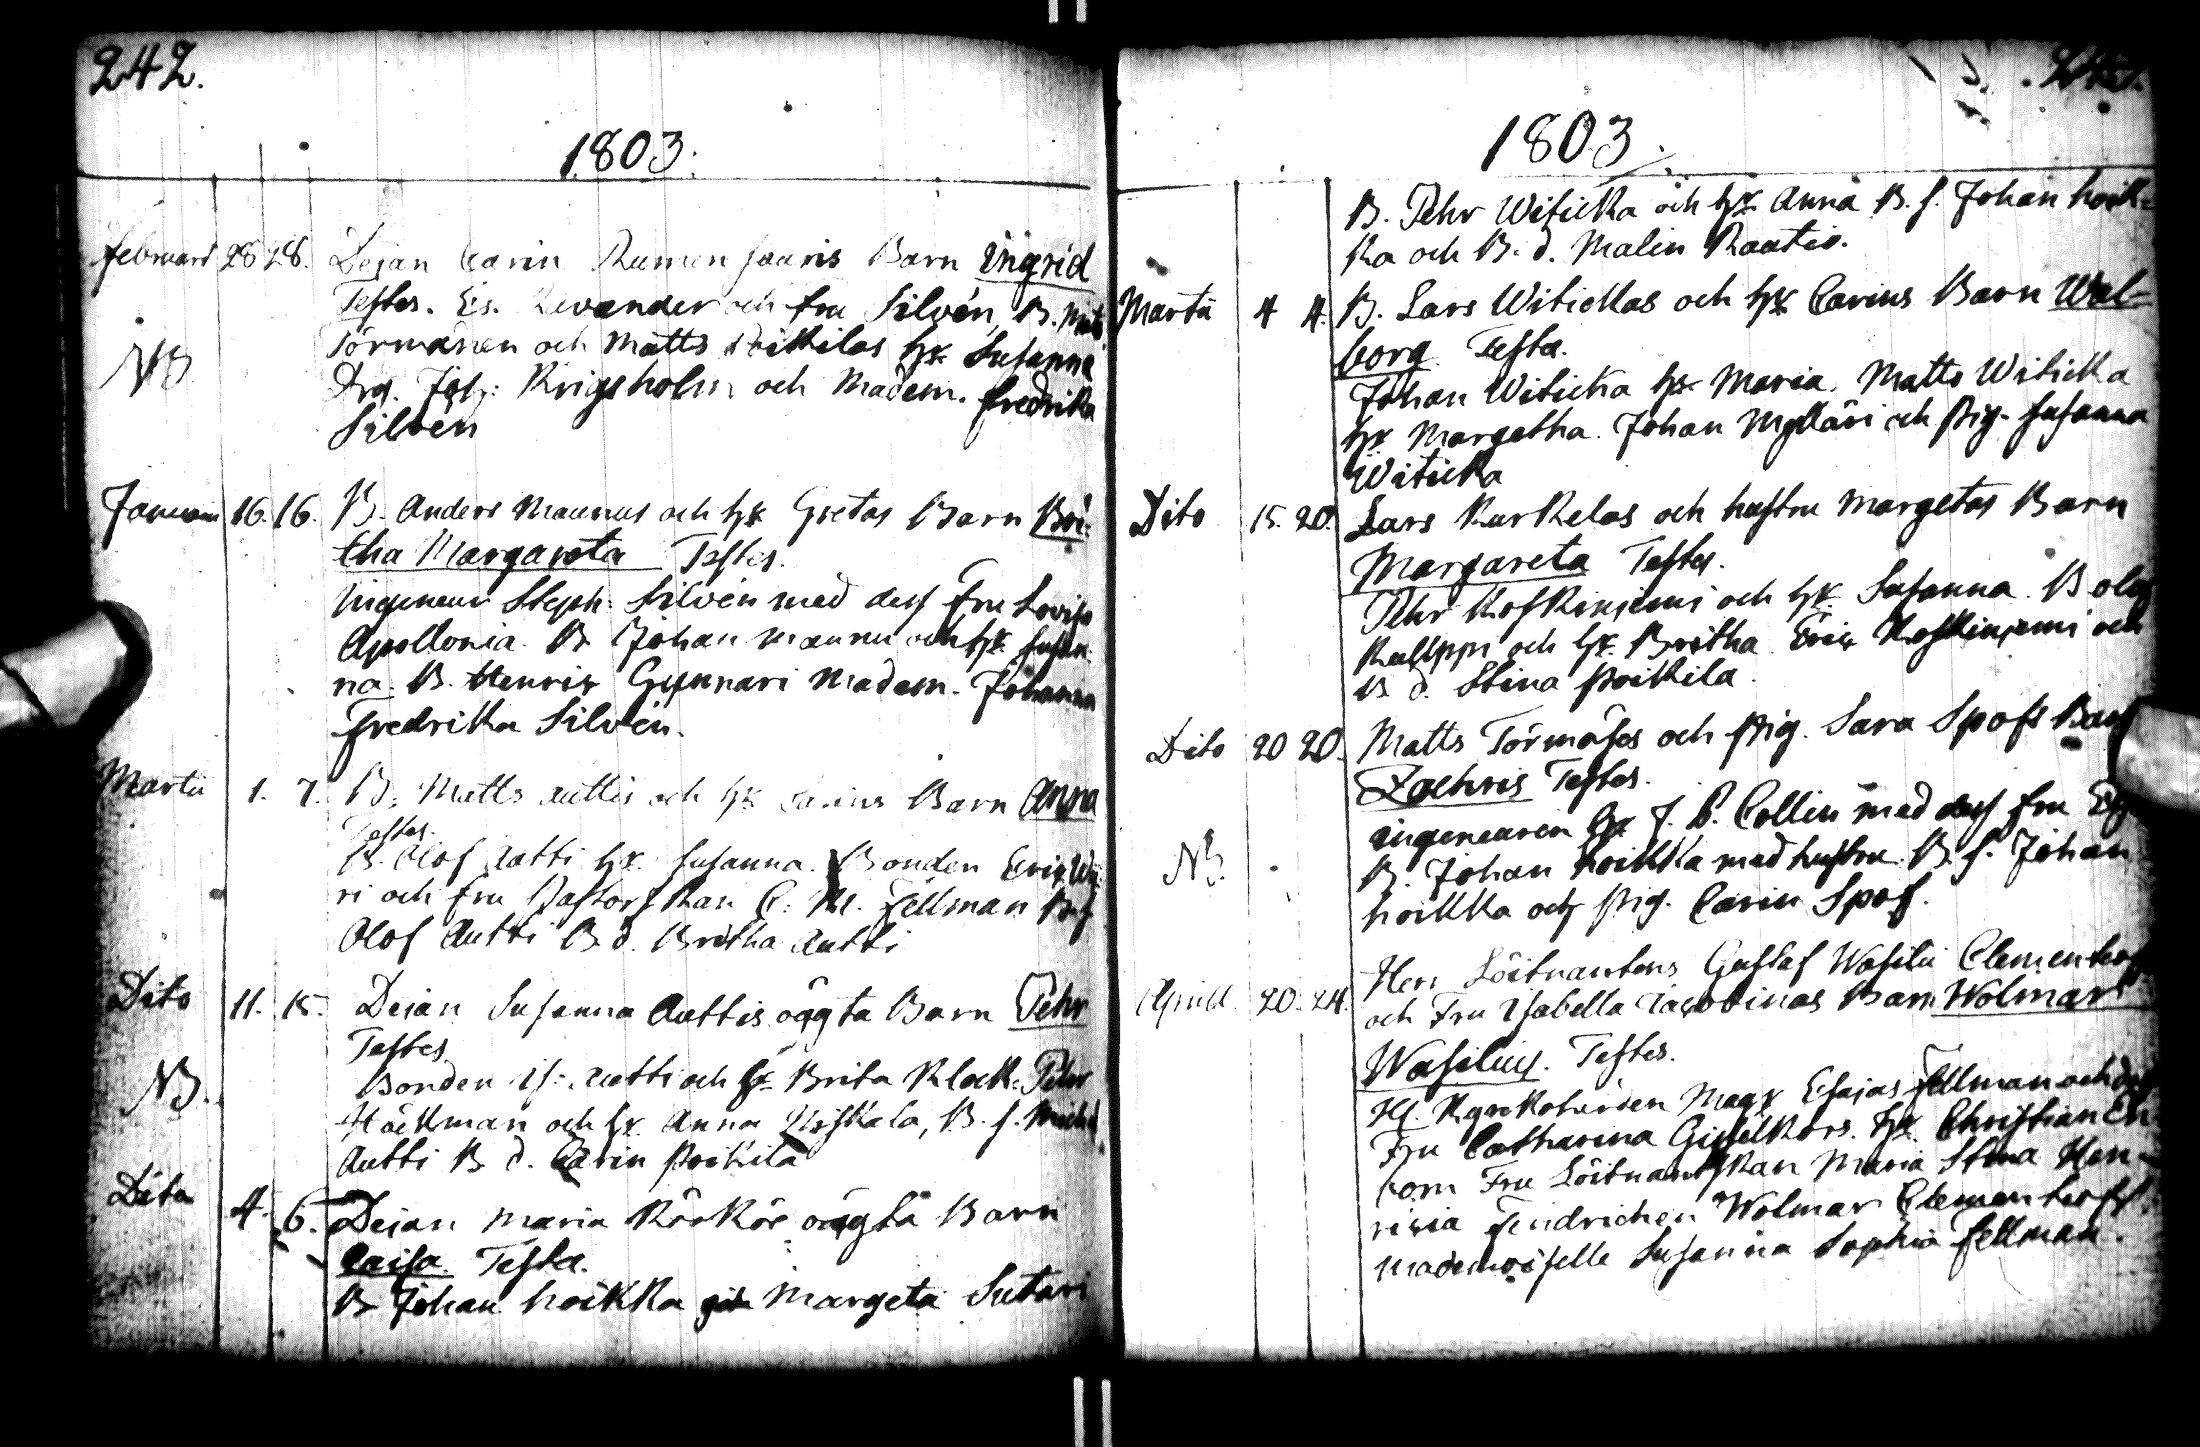 242.
1803.
Februari 28 28. Dejan Carin Rumen jaaris Barn Ingrid
Testes. Es. Levander och fru Silvén, B. Mats
NB Törmänen och Matts Poikilas hr Susanna
Drg. Joh: Krigsholm och Madem. Fredrika
Silvén
Januari 16. 16. B. Anders Maunus och hr Gretas Barn Bri-
tha Margareta Testes.
Ingeneur Steph: Silvén med dess Fru Lovisa
Apollonia. B Johan Maunu och hr Susan
na. B. Henrix Gunnari Madem. Johanna
Fredrika Silvén.
Martii 1. 7. B. Matts Auttis och hr Carins Barn Anna
Testes.
B. Olof Autti hr Susanna. Bonden Erix
ri och fru Pastorskan C. M. Fellman B. f
Olof Autti B d. Britha Autti
Dito 11. 15. Dejan Susanna Auttis oägta Barn Pehr
Testes
Bonden Is: Autti och hr Brita Klock. Pehr
NB. Häckman och hr Anna Niskala, B. f. Michel
Autti B d. Carin Poikila
Dito 4. 6. Dejan Maria Körkös oägta Barn
Caisa. Testes.
B Johan hoikka Margeta Sutari
1803.
B. Pehr Witicka och hr Anna B. f. Johan hoik-
ka och B. d. Malin Raatio.
Martii 4 4. B. Lars Witickas och hr Carins Barn Wal-
borg Testes.
Johan Witicka hr Maria. Matts Witicka
hr Margetha. Johan Mylläri och Pig. Susanna
Witicka
Dito 15. 20. Lars Karkelas och hustru Margetas Barn
Margareta Testes.
Pehr Koskiniemi och hr Susanna. B Olof
Kallppi och hr Britha Erix Koskiniemi och
B d. Stina Poikila.
Dito 20 20. Matts Törmäses och Pig. Sara Spofs Barn
Zachris Testes.
Ingeneuren hr J. P. Collin med dess fru
NB. B. Johan hoikka med hustru B. f. Johan
hoikka och Pig. Carin Spof.
Herr Löitnantens Gustaf Wasilii Clementeof
Aprill 20. 24. och Fru Isabella Jacobinas Barn Wolmar
Wasilius. Testes.
H. Kyrkoherden Magr Esajas Fellman och dess
Fru Catharina Giselkors. hr Christian Eh
born Fru Löitnantskan Maria Stina Hen-
ricia Fendrichen Wolmar Clementeoff
Mademoiselle Susanna Sophia Fellman.